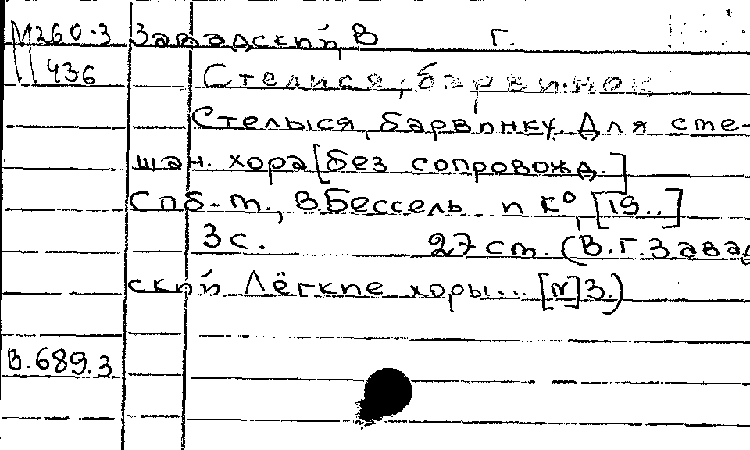 М260.3 Завадский, В г.
11 436 Стелися, барвинок
Стелыся, барвинку. Для сме-
шан. хора [без сопровожд.]
Спб.-т., В.Бессель и К⁰, [19..]
3 с. 27 ст. (В.Г.Завад
ский Лёгкие хоры... [№]3.)
В.689.3